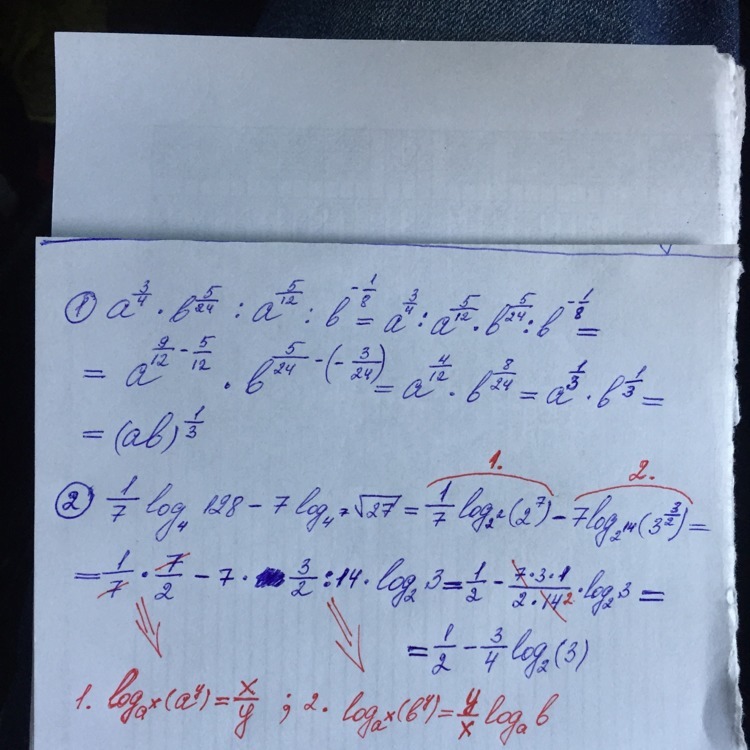 ① a^{3/4} · b^{5/24} : a^{5/12} : b^{-1/8} = a^{3/4} : a^{5/12} · b^{5/24} : b^{-1/8} =
= a^{9/12 - 5/12} · b^{5/24 - (-3/24)} = a^{4/12} · b^{8/24} = a^{1/3} · b^{1/3} =
= (ab)^{1/3}
1. 2.
② 1/7 log_4 128 - 7 log_{4^7} √27 = 1/7 log_{2^2} (2^7) - 7 log_{2^{14}} (3^{3/2}) =
= 1/7 · 7/2 - 7 · 3/2 : 14 · log_2 3 = 1/2 - 7·3·1/2·14 2 · log_2 3 =
= 1/2 - 3/4 log_2 (3)
1. log_{a^x} (a^y) = x/y ; 2. log_{a^x} (b^y) = y/x log_a b